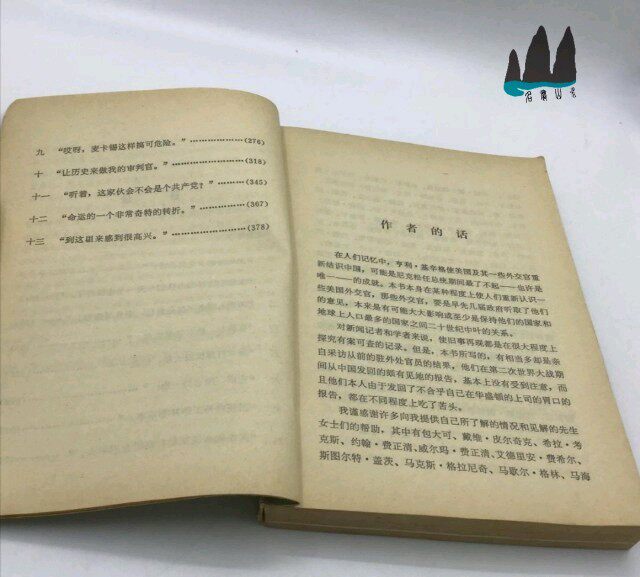 九 “哎呀，麦卡锡这样搞可危险。”…………………(276)
十 “让历史来做我的审判官。”…………………(318)
十一 “听着，这家伙会不会是个共产党？”…………(345)
十二 “命运的一个非常奇特的转折。”………………(367)
十三 “到这里来感到很高兴。”…………………(378)
作者的话
在人们记忆中，亨利·基辛格使美国及其一些外交官重
新结识中国，可能是尼克松任总统期间最了不起——也许是
唯一——的成就。本书本身在某种程度上使人们重新认识一
些美国外交官，那些外交官，要是早先几届政府听取了他们
的意见，本来是有可能大大影响或至少是保持他们的国家和
地球上人口最多的国家之间二十世纪中叶的关系。
对新闻记者和学者来说，使旧事再现都是在很大程度上
探究有案可查的记录。但是，本书所写的，有相当多却是亲
自采访从前的驻外处官员的结果，他们在第二次世界大战期
间从中国发回的颇有见地的报告，基本上没有受到注意，而
且他们本人由于发回了不合乎自己在华盛顿的上司的胃口的
报告，都在不同程度上吃了苦头。
我谨感谢许多向我提供自己所了解的情况和见解的先生
女士们的帮助，其中有包大可、戴维·皮尔奇克、希拉·考
克斯、约翰·费正清、威尔玛·费正清、艾德里安·费希尔、
斯图尔特·盖茨、马克斯·格拉尼奇、马歇尔·格林、马海